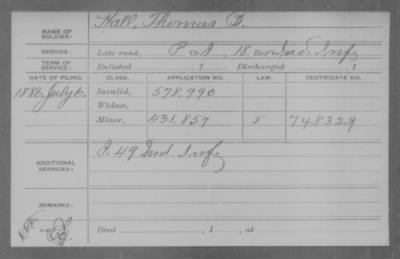 Hall, Thomas D.
NAME OF SOLDIER:
SERVICE: Late rank, Pvt, 18 Ind. Infy
TERM OF SERVICE: Enlisted , 1 Discharged , 1
DATE OF FILING. CLASS. APPLICATION NO. LAW. CERTIFICATE NO.
1886, July 6. Invalid, 578.990
Widow,
Minor, 431.857 748329
ADDITIONAL SERVICES: 49 Ind. Infy
REMARKS:
Died , 1 , at